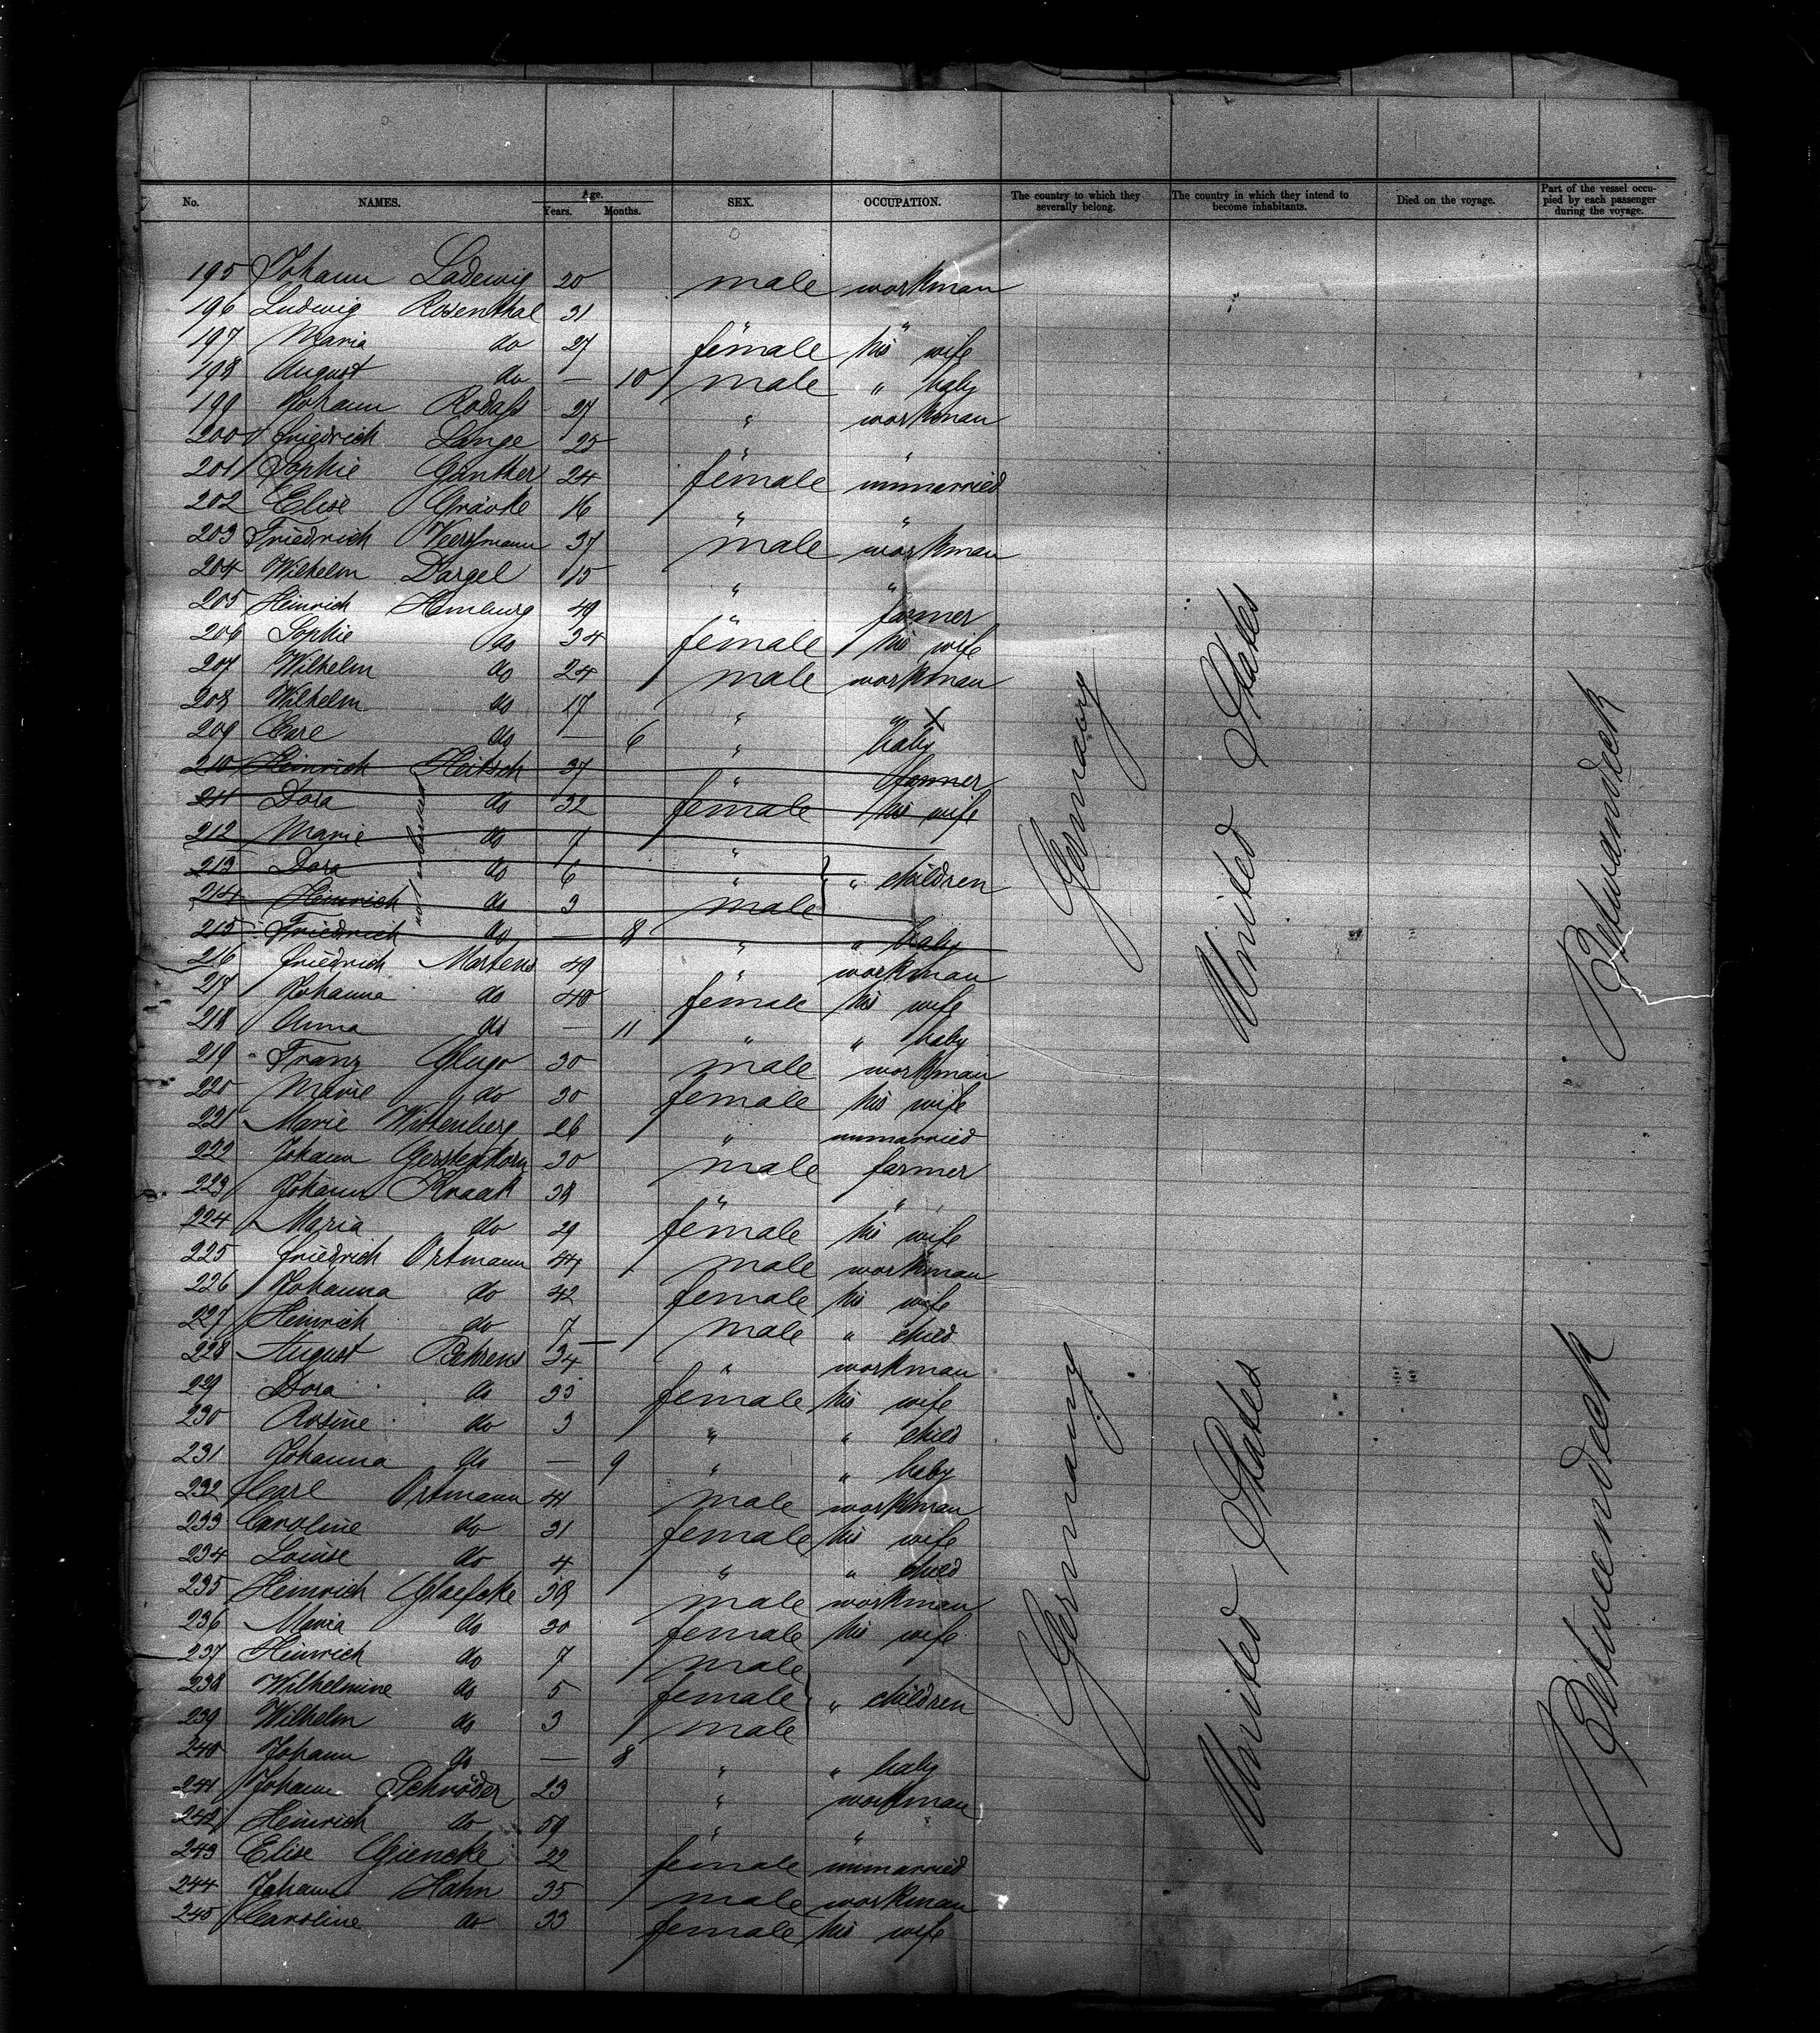 No. NAMES. Age. Years. Months. SEX. OCCUPATION. The country to which they severally belong. The country in which they intend to become inhabitants. Died on the voyage. Part of the vessel occupied by each passenger during the voyage.
195 Johann Ladewig 20 male workman
196 Ludwig Rosenthal 31 " "
197 Maria do 27 female his wife
198 August do — 10 male " baby
199 Johann 27 " workman
200 Friedrich Lange 25 " "
201 Sophie Günther 24 female unmarried
202 Elise Grävke 16 " "
203 Friedrich 37 male workman
204 Wilhelm Dargel 15 " "
205 Heinrich Homburg 49 " farmer
206 Sophie do 34 female his wife
207 Wilhelm do 24 male workman
208 Wilhelm do 17 " "
209 Carl do — 6 " baby
210 Heinrich Heitsch 37 " farmer
211 Dora do 32 female his wife
212 Marie do 7 "
213 Dora do 6 " " children
214 Heinrich do 3 male
215 Friedrich do — 8 " " baby
not embarked
216 Friedrich Martens 49 " workman
217 Johanna do 40 female his wife
218 Anna do — 11 " " baby
219 Franz Glugo 30 male workman
220 Marie do 30 female his wife
221 Marie Wittenberg 26 " unmarried
222 Johann Gerstenkorn 30 male farmer
223 Johann Knaak 38 " "
224 Maria do 29 female his wife
225 Friedrich Ortmann 44 male workman
226 Johanna do 42 female his wife
227 Heinrich do 7 male " child
228 August Behrens 34 " workman
229 Dora do 33 female his wife
230 Rosine do 3 " " child
231 Johanna do — 9 " " baby
232 Carl Ortmann 41 male workman
233 Caroline do 31 female his wife
234 Louise do 4 " " child
235 Heinrich Glaefcke 38 male workman
236 Maria do 30 female his wife
237 Heinrich do 7 male
238 Wilhelmine do 5 female " children
239 Wilhelm do 3 male
240 Johann do — 8 " " baby
241 Johann Schröder 23 " workman
242 Heinrich do 59 " "
243 Elise Giencke 22 female unmarried
244 Johann Hahn 35 male workman
245 Caroline do 33 female his wife
Germany
United States
Betweendeck
Germany
United States
Betweendeck